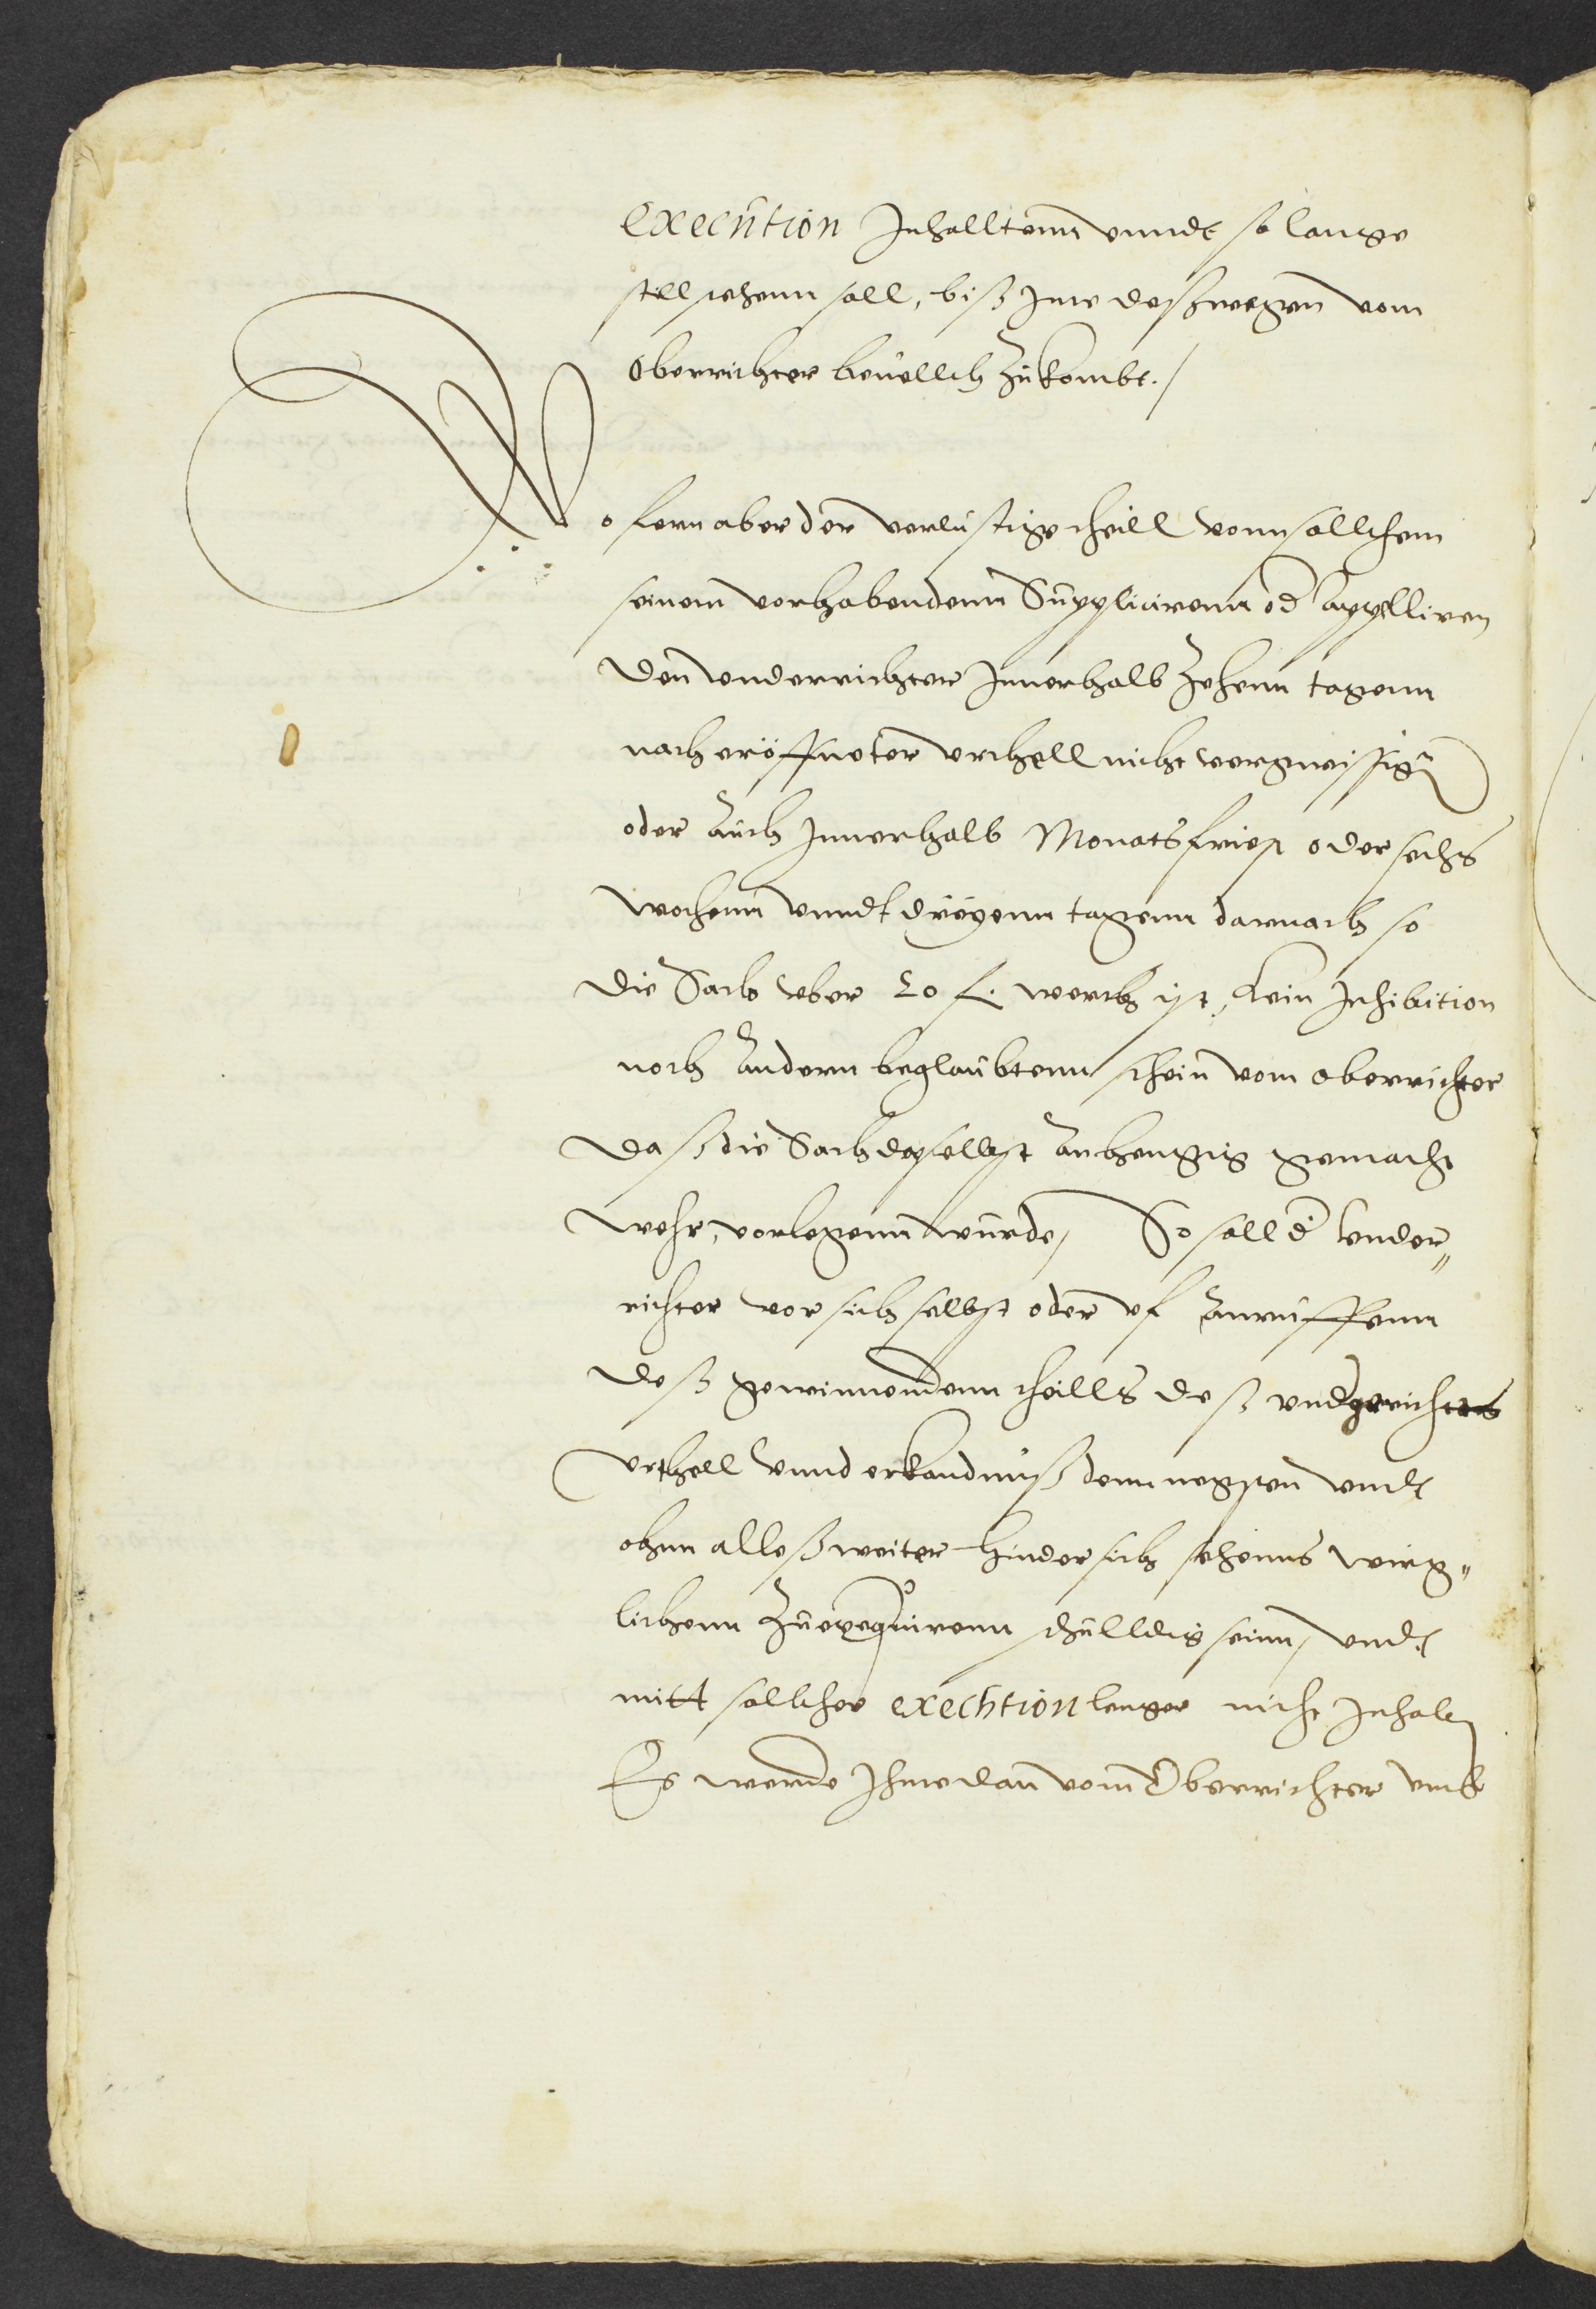 execution Inhalltenn vnndt so lange
still stehenn soll, biß Ime deßwegen vom
Oberrichter beuellch zukombt./
Wo fern aber der verlustige theill vonn sollchem
seinem vorhabendenn Supplicirenn od appelliren
den vnderrichter Innerhalb zehenn tagenn
nach eröffneter vrthell nicht vergwissigen
oder auch Innerhalb Monatsfrist oder sechs
wochenn vnndt dreyenn tagenn darnach so
die Sach vber 20 f. werth ist, kein Inhibition
noch andern beglaubtenn schein vom oberrichter
daß die Sach daselbst anhengig gemacht
wehr, vorlegenn wurde, So soll d vnder„
richter vor sich selbst oder vf anruffenn
deß gewinnendenn theills deß vndgerichts
vrthell vnnd erkandnuß dem negsten vndt
ohnn alleß weiter hindersich sehenns wirg„
lichenn zu exequirenn schulldig seinn, vndt
mitt sollcher execution lenger nicht Inhalten
Es werde Ihme dan vom Oberrichter vmb